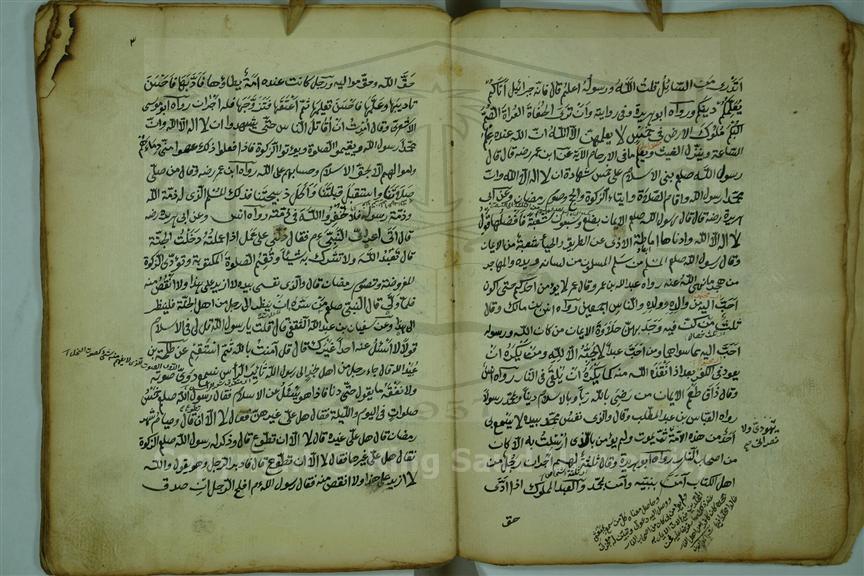 اتدري من السائل قلت الله ورسوله اعلم قال فانه جبرائيل اتاكم
يعلمكم دينكم ورواه ابو هريرة وفي رواية وان ترى الحفاة العراة الصم
البكم ملوك الارض في خمس لا يعلمهن الا الله ان الله عنده علم
الساعة وينزل الغيث ويعلم ما في الارحام الاية عن ابن عمر رضه قال قال
رسول الله صلعم بنى الاسلام على خمس شهادة ان لا اله الا الله وان
محمد رسول الله واقام الصلاة وايتاء الزكوة والحج وصوم رمضان وعن ابي
هريرة رضه قال قال رسول الله صلعم الايمان بضع وسبعون شعبة فافضلها قول
لا اله الا الله وادناها اماطة الاذى عن الطريق والحياء شعبة من الايمان
وقال رسول الله صلعم المسلم من سلم المسلمون من لسانه ويده والمهاجر
من هجر ما نهى الله عنه رواه عبد الله بن عمر وقال عم لا يؤمن احدكم حتى اكون
احب اليه من والده وولده والناس اجمعين رواه انس بن مالك وقال
ثلث من كن فيه وجد بهن حلاوة الايمان من كان الله ورسوله
احب اليه مما سواهما ومن احب عبدا لا يحبه الا لله ومن يكره ان
يعود في الكفر بعد اذ انقذه الله منه كما يكره ان يلقى في النار رواه انس
وقال ذاق طعم الايمان من رضي بالله ربا وبالاسلام دينا وبمحمد رسولا
رواه العباس بن عبد المطلب وقال والذي نفس محمد بيده لا يسمع بي
احد من هذه الامة ثم يموت ولم يؤمن بالذي ارسلت به الا كان
من اصحاب النار رواه ابو هريرة وقال ثلثة لهم اجران رجل من
اهل الكتاب آمن بنبيه وآمن بمحمد والعبد المملوك اذا ادى
حق
يهودي ولا
نصراني
حق الله وحق مواليه ورجل كانت عنده امة يطاؤها فادبها فاحسن
تاديبها وعلمها فاحسن تعليمها ثم اعتقها فتزوجها فله اجران رواه ابو موسى
الاشعري وقال امرت ان اقاتل الناس حتى يشهدوا ان لا اله الا الله وان
محمد رسول الله ويقيموا الصلوة ويؤتوا الزكوة فاذا فعلوا ذلك عصموا مني دماءهم
واموالهم الا بحق الاسلام وحسابهم على الله رواه ابن عمر رضه وقال من صلى
صلاتنا واستقبل قبلتنا واكل ذبيحتنا فذلك المسلم الذي له ذمة الله
وذمة رسوله فلا تخفروا الله في ذمته رواه انس وعن ابي هريرة رضه
قال اتى اعرابي النبي عم فقال دلني على عمل اذا عملته دخلت الجنة
قال تعبد الله ولا تشرك به شيئا وتقيم الصلوة المكتوبة وتؤدي الزكوة
المفروضة وتصوم رمضان قال والذي نفسي بيده لا ازيد على هذا ولا انقص منه
فلما ولى قال النبي صلعم من سره ان ينظر الى رجل من اهل الجنة فلينظر
الى هذا وعن سفيان بن عبد الله الثقفي قال قلت يا رسول الله قل لي في الاسلام
قولا لا اسئل عنه احدا غيرك قال قل آمنت بالله ثم استقم عن طلحة بن
عبيد الله قال جاء رجل من اهل نجد الى رسول الله ثائر الراس نسمع دوي صوته
ولا نفقه ما يقول حتى دنا فاذا هو يسئل عن الاسلام فقال رسول الله صلعم خمس
صلوات في اليوم والليلة فقال هل علي غيرهن فقال لا الا ان تطوع قال وصيام شهر
رمضان قال هل علي غيره قال لا الا ان تطوع قال وذكر له رسول الله صلعم الزكوة
فقال هل علي غيرها فقال لا الا ان تطوع قال فادبر الرجل وهو يقول والله
لا ازيد على هذا ولا انقص منه فقال رسول الله عم افلح الرجل ان صدق